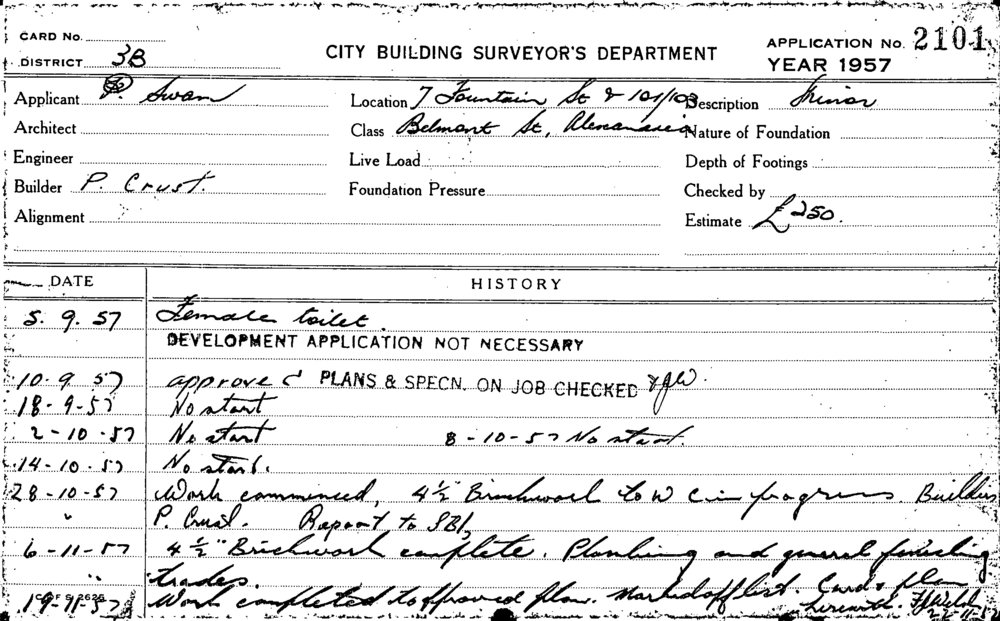 CARD No.
DISTRICT 3B
CITY BUILDING SURVEYOR'S DEPARTMENT
APPLICATION No. 2101
YEAR 1957
Applicant P. Swan
Location 7 Fountain St & 101/103
Description Minor
Architect
Class Belmont St, Alexandria
Nature of Foundation
Engineer
Live Load
Depth of Footings
Builder P. Crust.
Foundation Pressure
Checked by
Alignment
Estimate £250.
DATE HISTORY
5. 9. 57 Female toilet.
DEVELOPMENT APPLICATION NOT NECESSARY
10-9 57 approved PLANS & SPECN. ON JOB CHECKED
18-9-57 No start
2-10-57 No start 8-10-57 No start.
14-10-57 No start.
28-10-57 Work commenced, 4½" Brickwork to W C in progress. Builder
" P. Crust. Report to SBI,
6-11-57 4½" Brickwork complete. Plumbing and general finishing
" trades.
19-11-57 Work completed to approved plan. Marked off list. Card & plan
herewith.